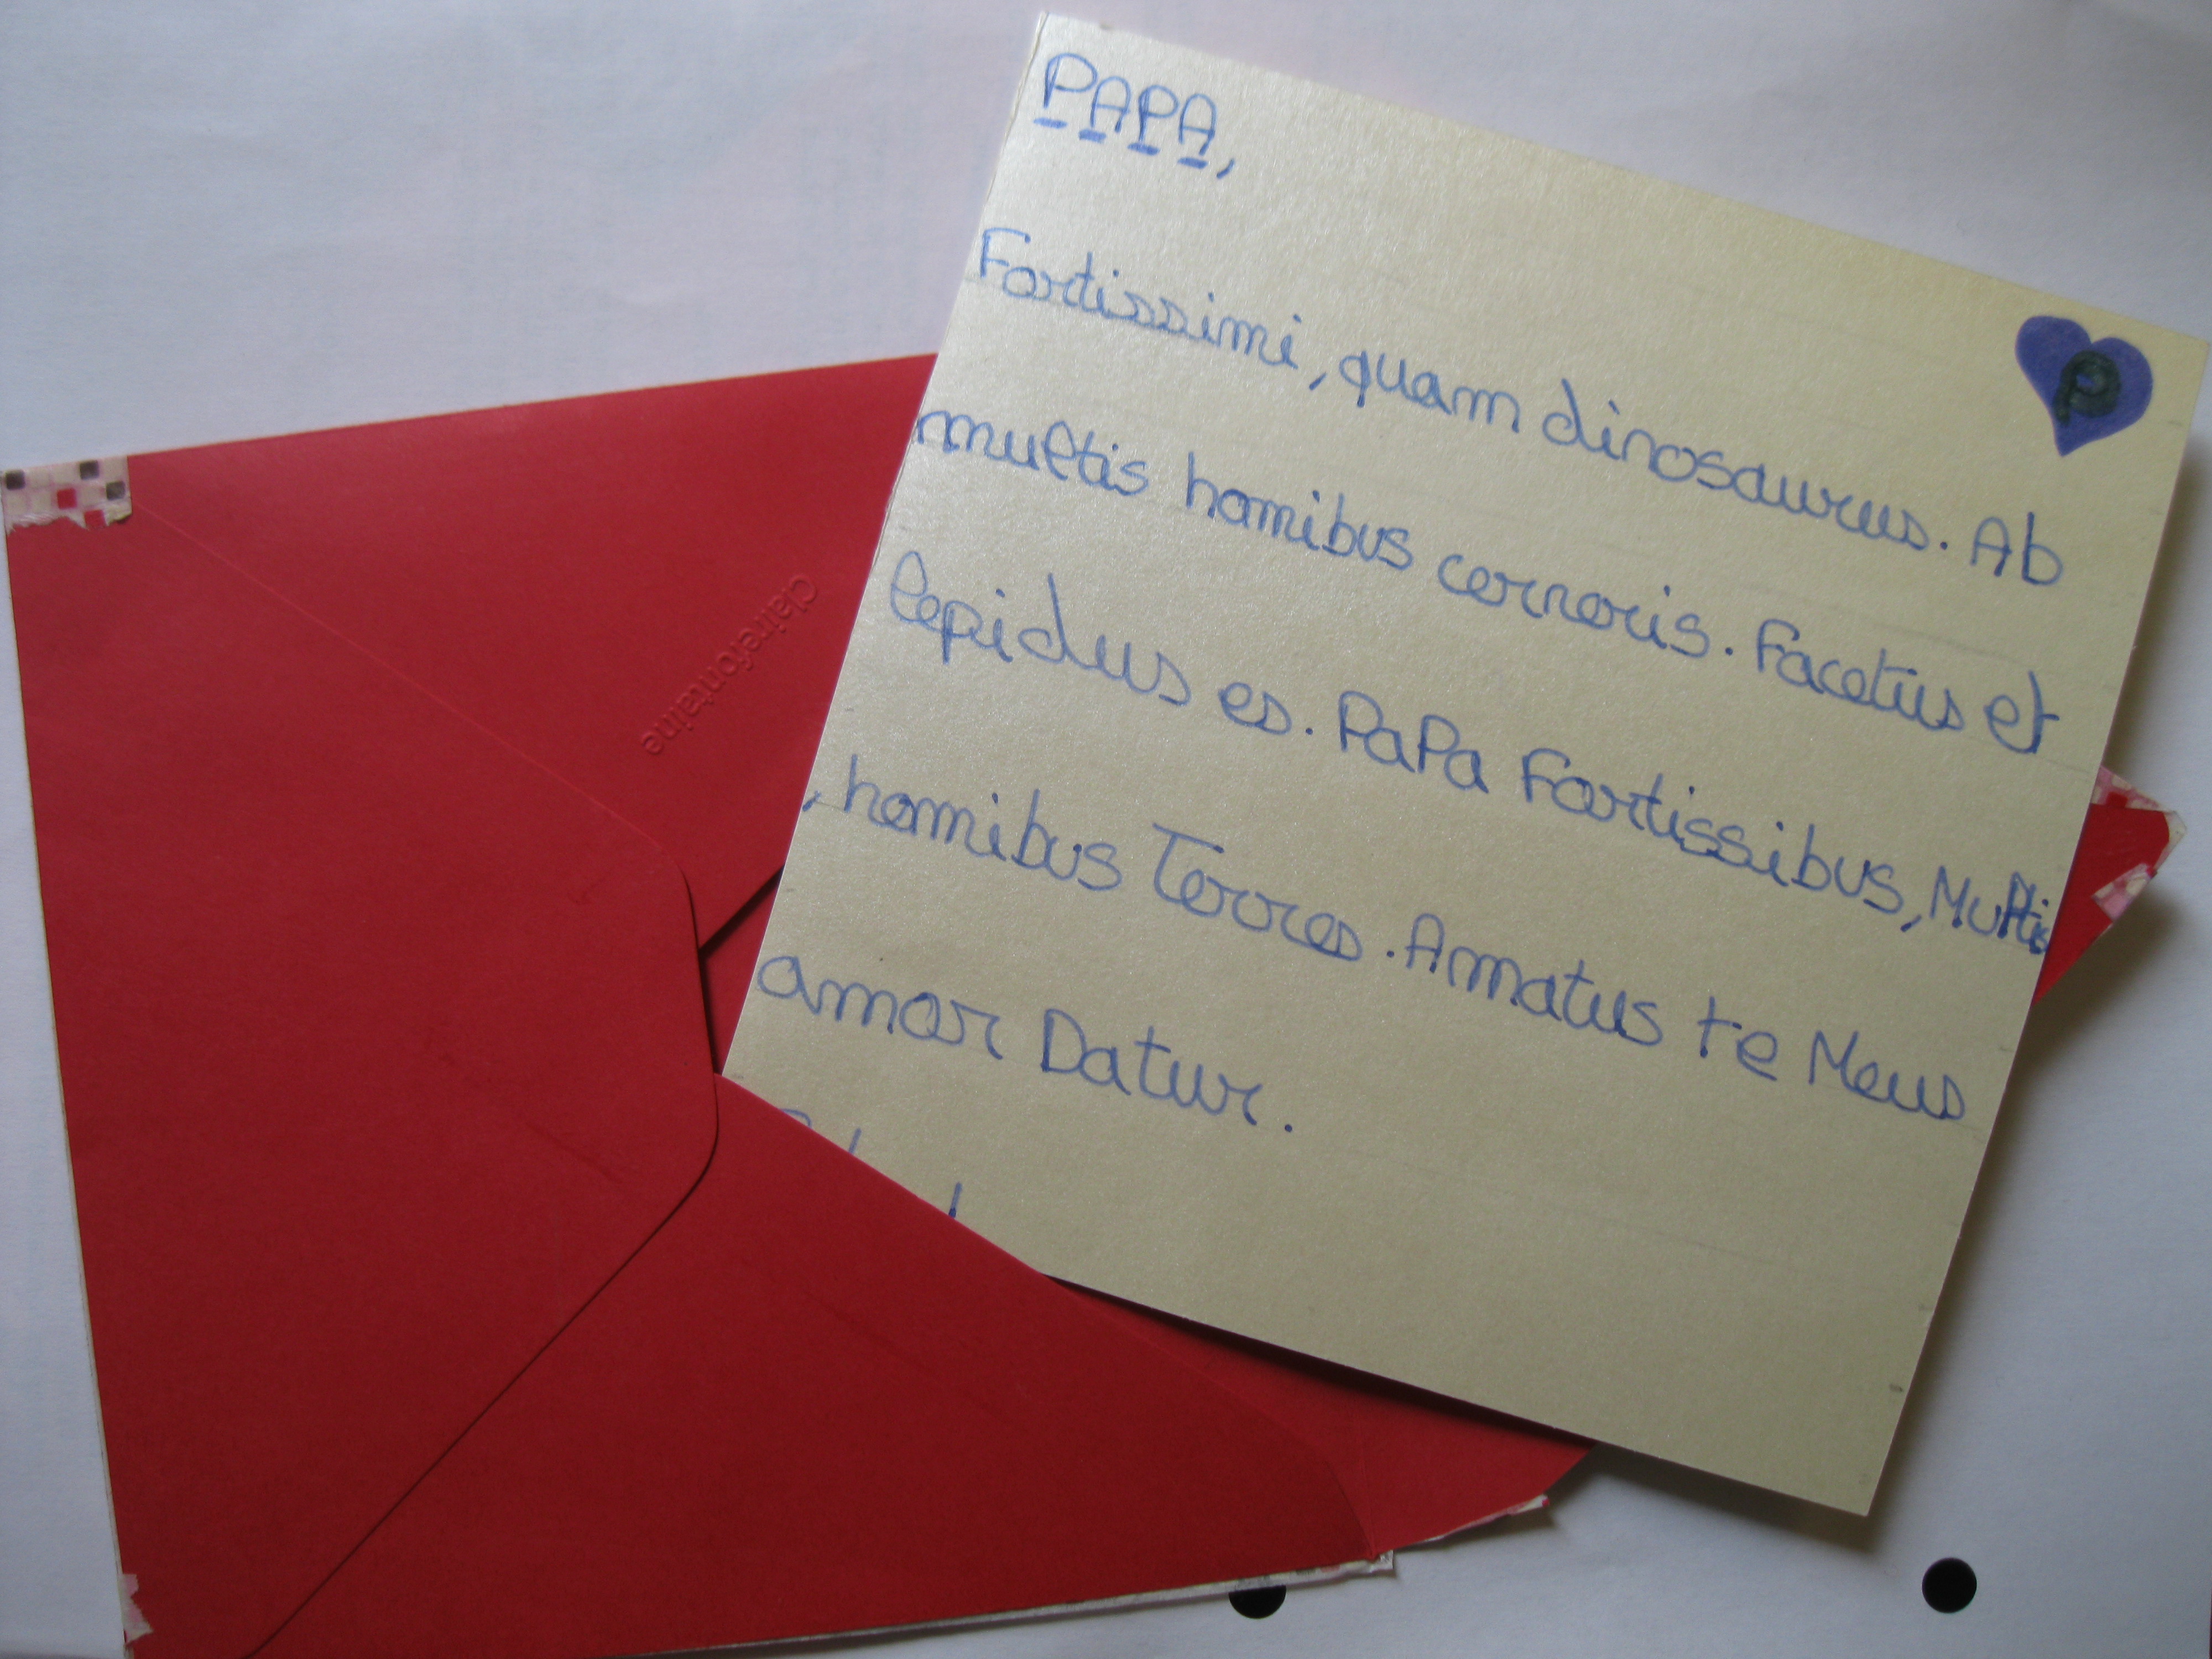 PAPA,
Fortissimi, quam dinosaurus. Ab
multis homibus cernoris. Facetus et
lepidus es. PaPa Fortissibus, Multis
, homibus Terres. Amatus te Meus
amor Datur.
P
Clairefontaine